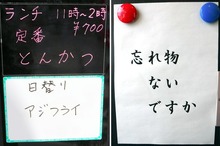 ランチ 11時~2時
定番 ¥700
とんかつ
日替り
アジフライ
忘れ物
ない
ですか